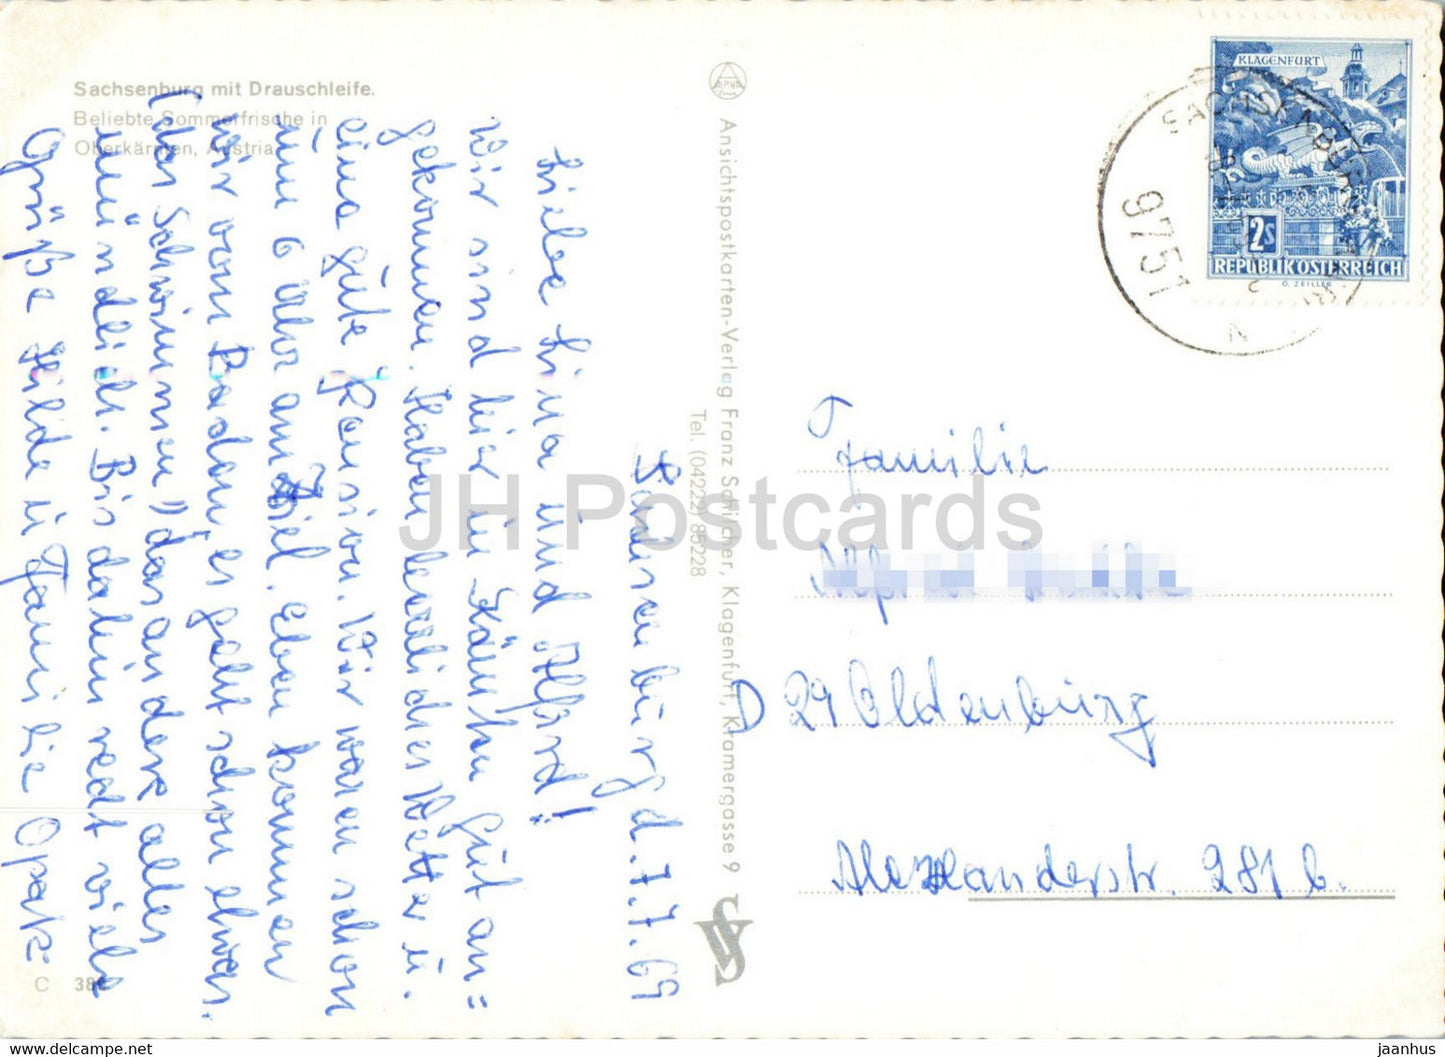 Sachsenburg mit Drauschleife.
Beliebte Sommerfrische in
Oberkärnten, Austria
Ansichtspostkarten-Verlag Franz Schilcher, Klagenfurt, Kramergasse 9
Tel. (04222) 85228
KLAGENFURT
2S
REPUBLIK ÖSTERREICH
O. ZEILLER
SACHSENBURG
9751
Sachsenburg d. 7.7.69
Liebe Lina und Alfred!
Wir sind hier in Kärnten gut an=
gekommen. Haben herrliches Wetter u.
eine gute Pension. Wir waren schon
um 6 Uhr am Ziel. Eben kommen
wir vom Baden, es geht schon etwas.
(das Schwimmen) das andere alles
mündlich. Bis dahin recht viele
Grüße Hilde u Familie Opak
Familie
D 29 Oldenburg
Alexanderstr. 281 b.
C 38
JH Postcards
jaanhus — https://www.delcampe.net